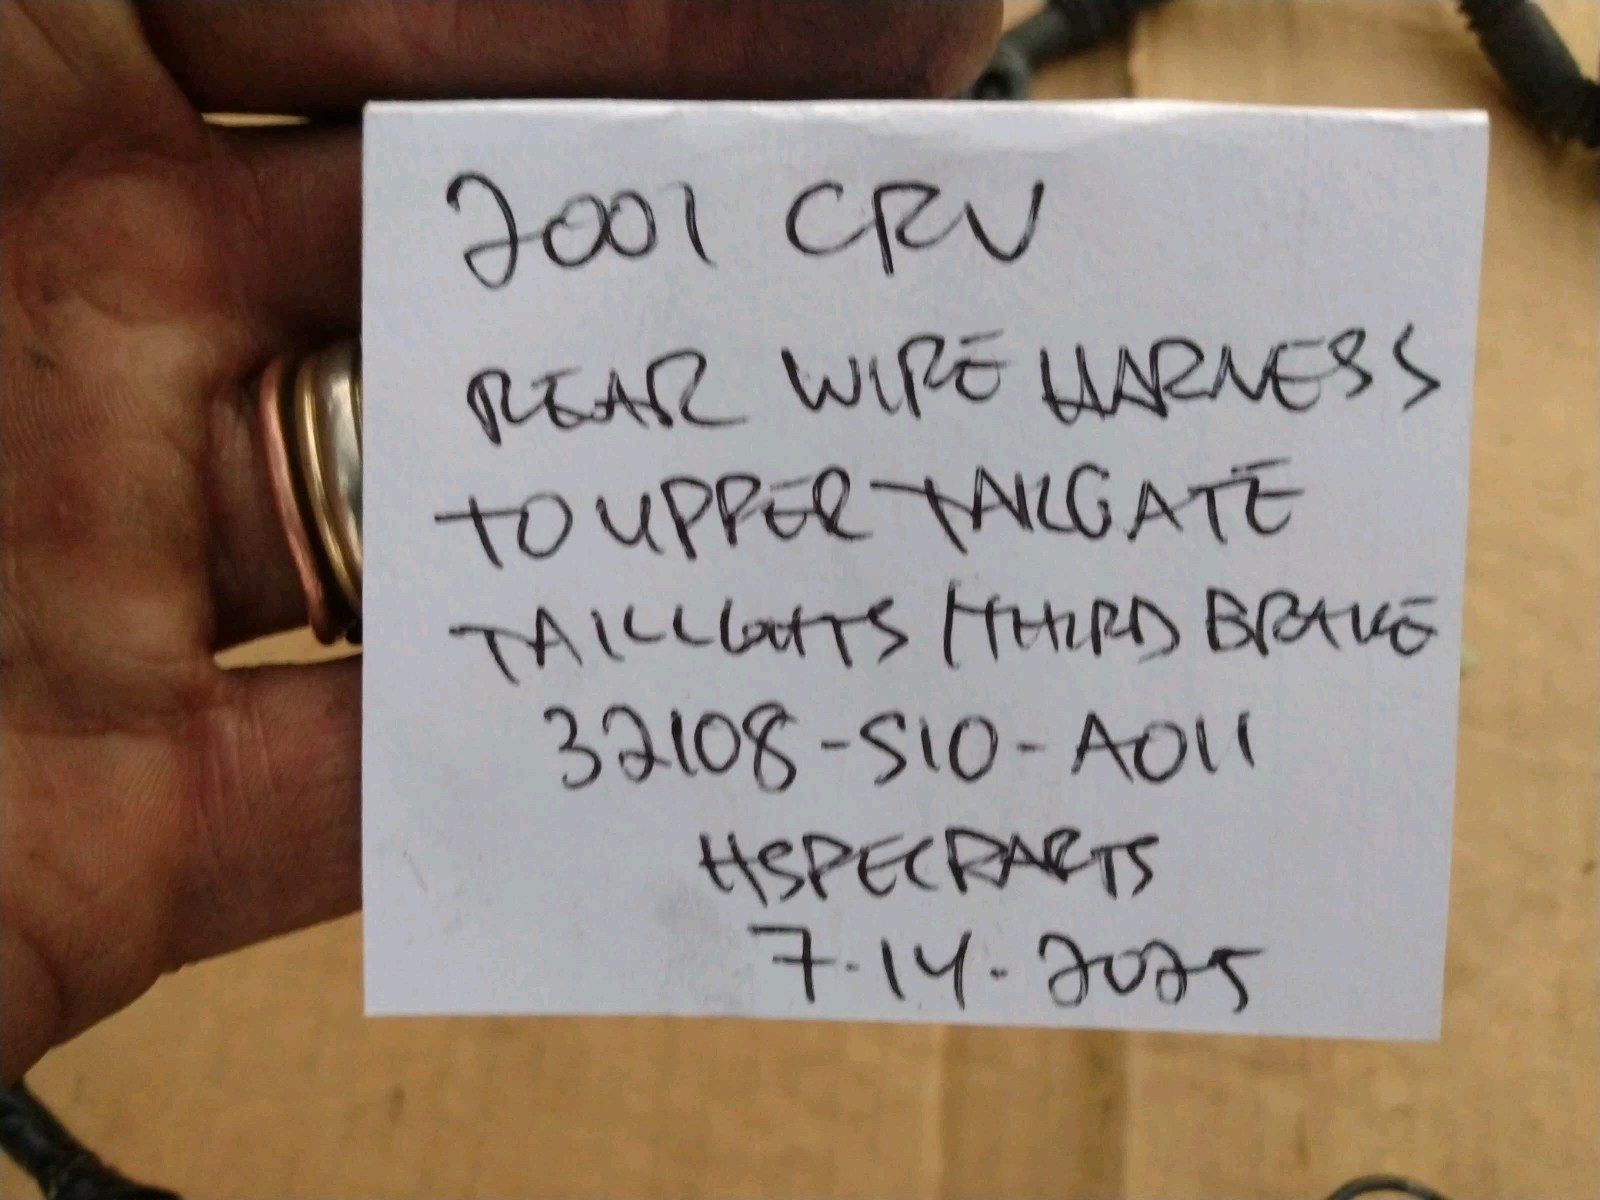 2001 CRV
REAR WIRE HARNESS
TO UPPER TAILGATE
TAILLGHTS / THIRD BRAKE
32108-S10-A011
HSPECPARTS
7-14-2025